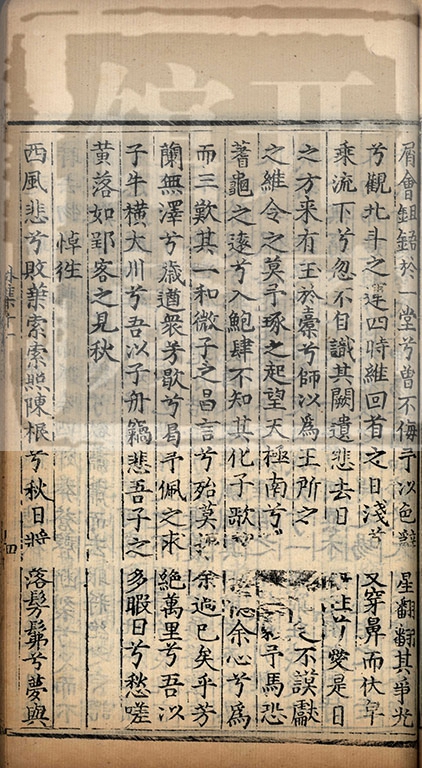 屑會鉏鋙於 堂兮曾不侮予以色辭星翻翻其爭光
兮觀北斗之運四時維回首之日淺兮又穿鼻而伏皁
乘流下兮忽不自識其闕遺悲去日 兮愛是日
之方來有玉於櫜兮師以為玉所之 不謨獻
之維令之莫予琢之起望天極南兮 予馬恐
蓍龜之遠兮入鮑肆不知其化子歌 余心兮為
而三歎其一和微子之昌言兮殆莫 余過已矣乎芳
蘭無澤兮歲遒衆芳歇兮曷予佩之來絕萬里兮吾以
子牛橫大川兮吾以子舟觴悲吾子之多暇日兮愁嗟
黃落如郢客之見秋
悼往
西風悲兮敗葉索索照陳根兮秋日將落髣髴兮夢與
四